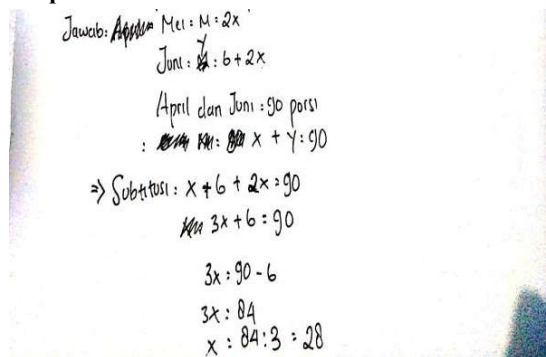 Jawab: Mei : M : 2x
Juni : y : 6 + 2x
April dan Juni : 90 porsi
: x + y : 90
⇒ Subtitusi : x + 6 + 2x = 90
3x + 6 : 90
3x : 90 - 6
3x : 84
x : 84 : 3 : 28